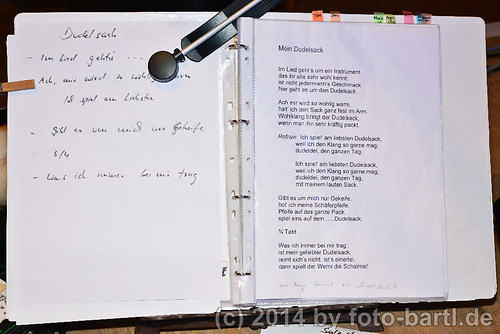 Dudelsack
- Im Lied geht's ...
- Ach, mir wird so wohl warm
Ich spiel am liebsten
- Gibt es um mich nur Gekeife
3/4
- Was ich immer bei mir trag
Mein Dudelsack
Im Lied geht's um ein Instrument,
das ihr alle sehr wohl kennt,
ist nicht jedermann's Geschmack
hier geht es um den Dudelsack.
Ach mir wird so wohlig warm,
halt' ich den Sack ganz fest im Arm.
Wohlklang bringt der Dudelsack,
wenn man ihn sehr kräftig packt.
Refrain: Ich spiel' am liebsten Dudelsack,
weil ich den Klang so gerne mag,
dudeldei, den ganzen Tag,
Ich spiel' am liebsten Dudelsack,
weil ich den Klang so gerne mag;
dudeldei, den ganzen Tag,
mit meinem lauten Sack.
Gibt es um mich nur Gekeife,
hol' ich meine Schäferpfeife.
Pfeife auf das ganze Pack,
spiel eins auf dem .....Dudelsack.
¾ Takt
Was ich immer bei mir trag',
ist mein geliebter Dudelsack,
reimt sich's nicht, ist's einerlei,
dann spielt der Werni die Schalmei'.
(c) 2014 by foto-bartl.de